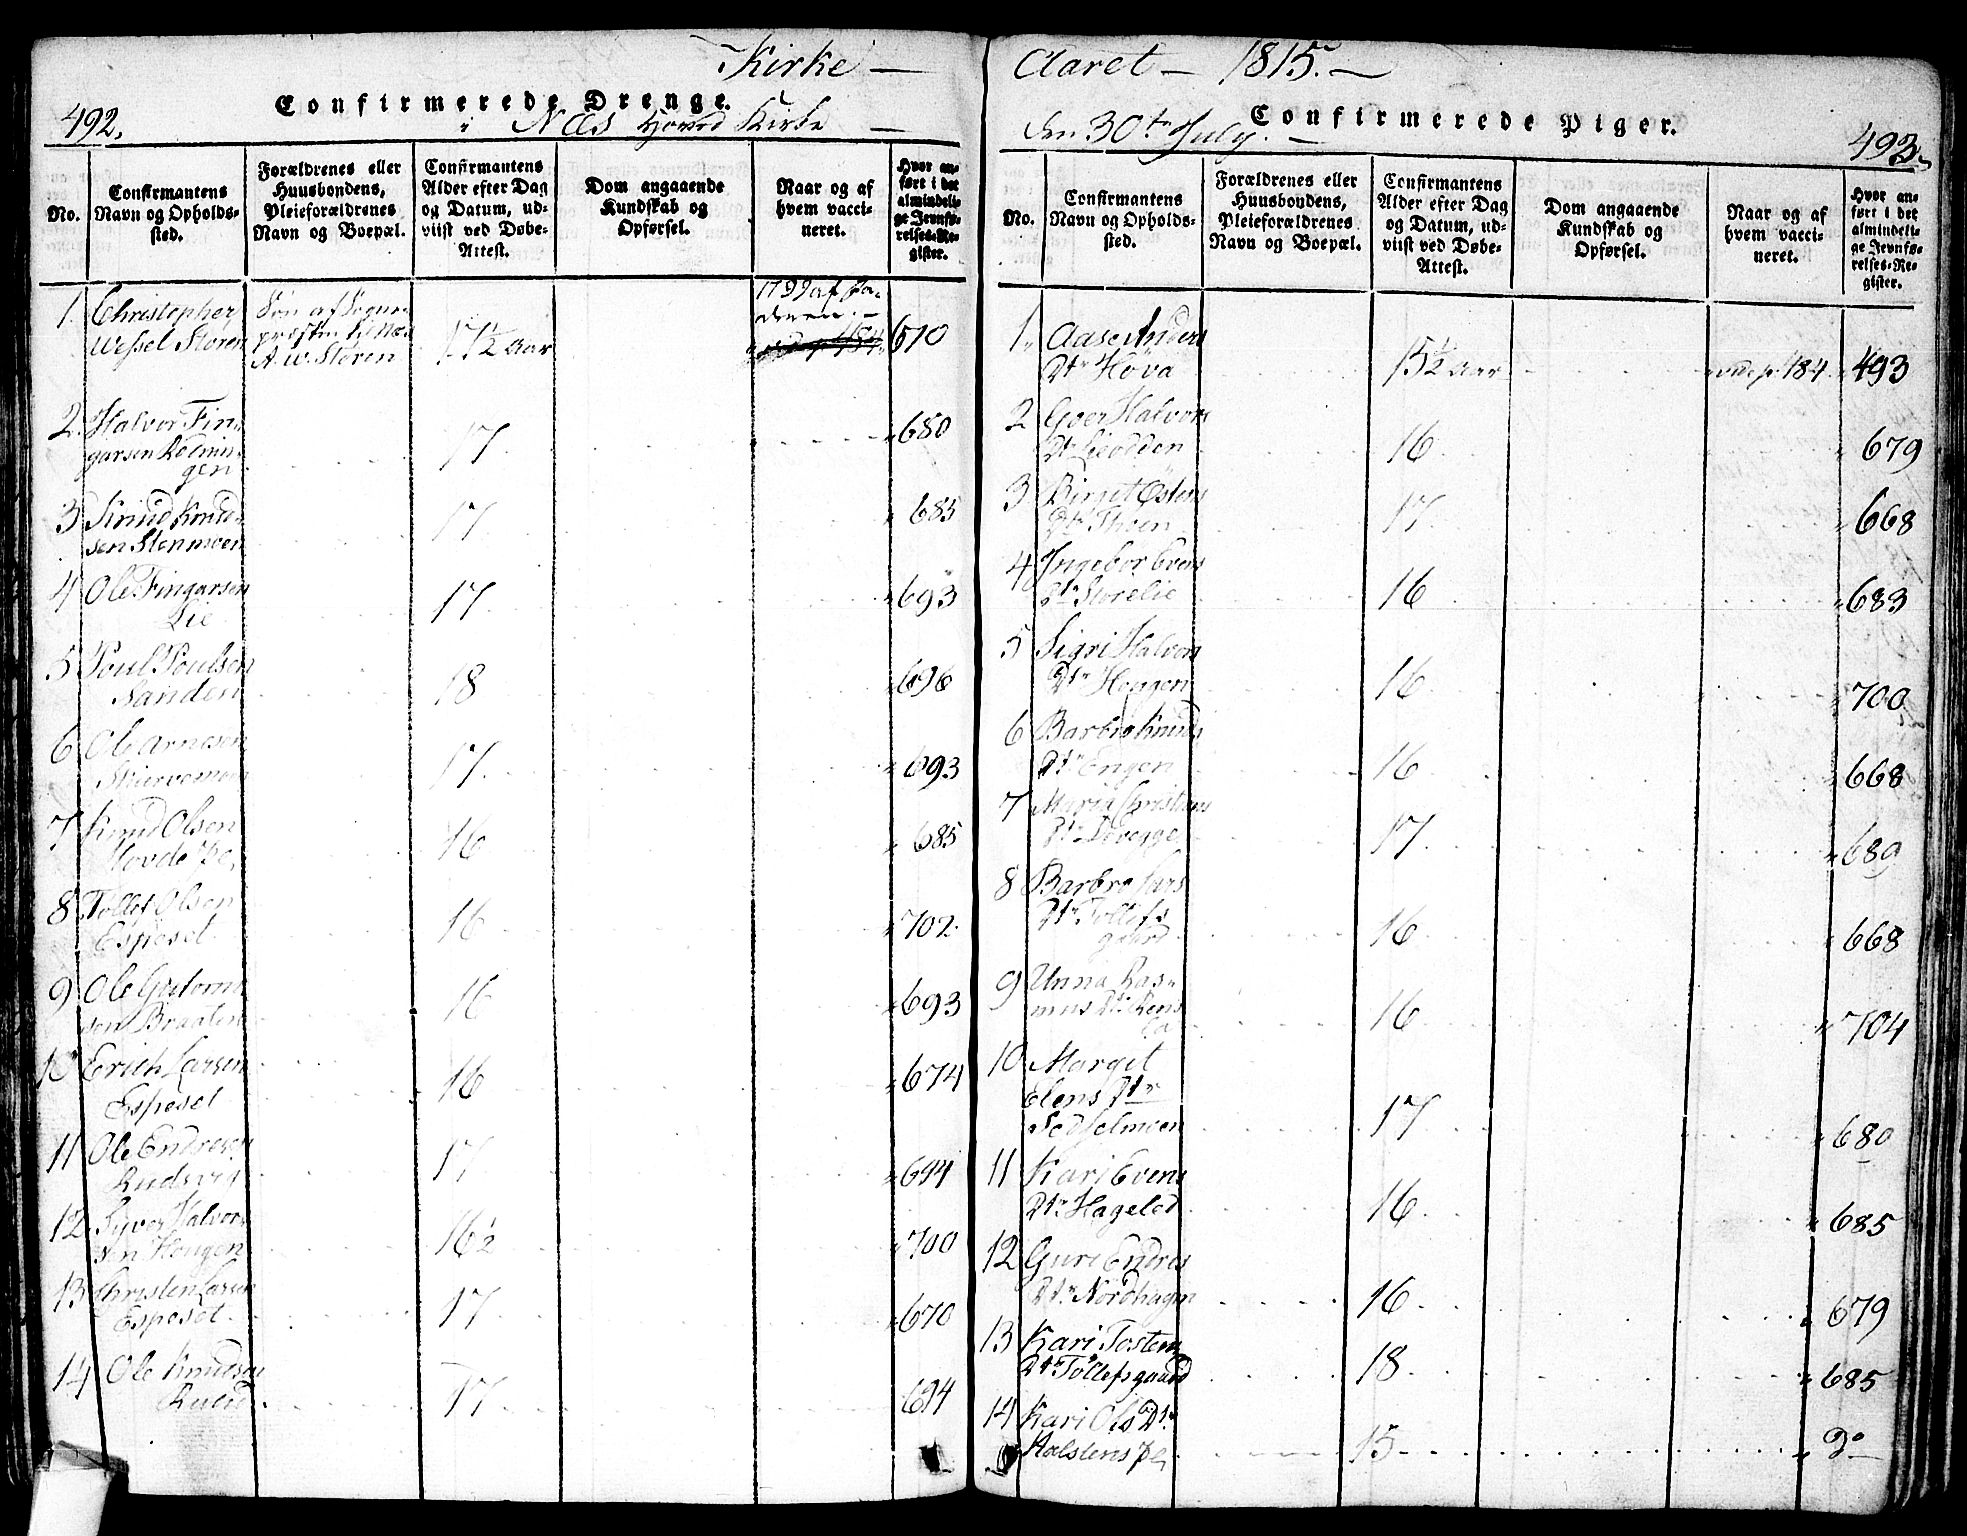 Kirke — Aaret — 1815. —
492.
Confirmerede Drenge.
i Næs Hoved Kirke —
No.
Confirmantens Navn og Opholdssted.
Forældrenes eller Huusbondens, Pleieforældrenes Navn og Boepæl.
Confirmantens Alder efter Dag og Datum, udviist ved Døbe-Attest.
Dom angaaende Kundskab og Opførsel.
Naar og af hvem vaccineret.
Hvor anført i det almindelige Jevnførelses-Register.
1. Christopher Søn af Sogne- 1799 af Fa-
Wessel Støren præsten til Næs 17½ Aar deren. — 670
A. W. Støren
2. Halvor Fin-
garsen Rolmin- 17 680
gen
3 Knud Knud-
sen Stenmoen 17 685
4 Ole Fingarsen
Lie 17 693
5 Poul Poulsen
Sanden 18 696
6 Ole Arnesen
Skiervemoen 17 693
7 Knud Olsen
Hovde 16 685
8 Tollef Olsen
Espeset 16 702
9 Ole Guttorm-
sen Braaten 16 693
10 Erich Larsen
Espeset 16 674
11 Ole Endresen
Rudsvig 17 694
12 Syver Halvor-
sen Hougen 16½ 700
13 Christen Larsen
Espeset 17 670
14 Ole Knudsen
Rulid 17 694
den 30te July. —
Confirmerede Piger.
493
No.
Confirmantens Navn og Opholdssted.
Forældrenes eller Huusbondens, Pleieforældrenes Navn og Boepæl.
Confirmantens Alder efter Dag og Datum, udviist ved Døbe-Attest.
Dom angaaende Kundskab og Opførsel.
Naar og af hvem vaccineret.
Hvor anført i det almindelige Jevnførelses-Register.
1. Aase Anders
Dtr Høva 15½ Aar vide p. 184 493
2 Goer Halvors
Dtr Lieodden 16 679
3 Birget Østens
Dtr Thoen 17 668
4 Ingebor Evens
Dtr Storelie 16 683
5 Sigri Halvors
Dtr Hougen 16 700
6 Barbro Knuds
Dtr Engen 16 668
7 Maria Christians
Dtr 17 680
8 Barbro Lars
Dtr Tollefs 16 668
gaard
9 Unna Ras-
mus Dtr 16 704
10 Margit
Elens Dtr
Sedselmoen 17 680
11 Kari Evens
Dtr Hageled 16 685
12 Guri Endres
Dtr Nordhagen 16 679
13 Kari Tosten
Dtr Tollefsgaard 18 685
14 Kari Ols Dtr
Halstens 15 Do